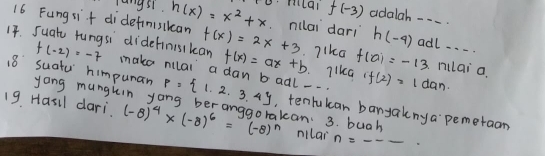 ungsi. h(x) = x² + x. nilai dari h(-4) adl ----.
nilai f(-3) adalah ----.
16 Fungsi f didefinisikan f(x) = 2x + 3. Jika f(a) = -13. nilai a.
17. Suatu fungsi didefinisikan f(x) = ax + b. Jika f(2) = 1 dan.
f(-2) = -7 maka nilai a dan b adl ---.
18 suatu himpunan P = {1. 2. 3. 4}, tentukan banyaknya pemetaan
yang mungkin yang beranggotakan. 3. buah
19. Hasil dari. (-8)⁴ × (-8)⁶ = (-8)ⁿ nilai n = ----.